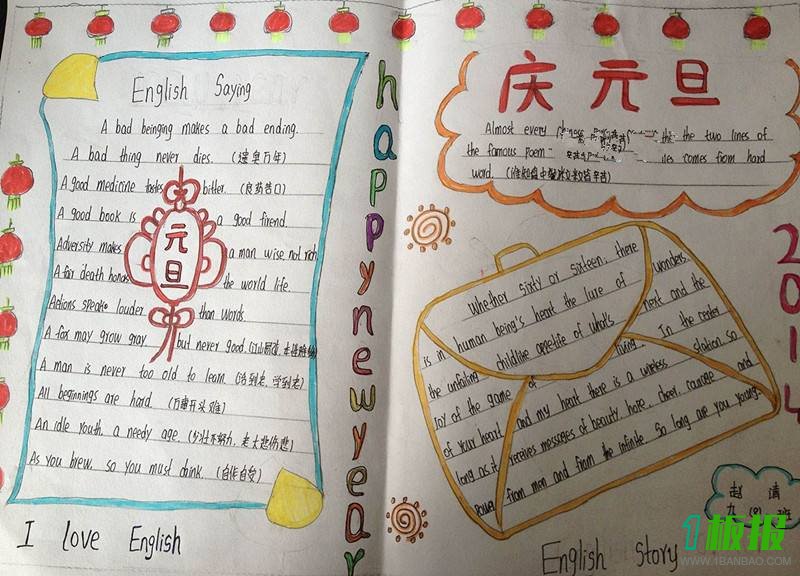 English Saying
A bad beinging makes a bad ending.
A bad thing never dies. (遗臭万年)
A good medicine tastes bitter. (良药苦口)
A good book is a good firend.
Adversity makes a man wise not rich
A fair death honors the world life.
Actions speak louder than words
A fox may grow gray but never good.
A man is never too old to learn. (活到老,学到老)
All beginnings are hard. (万事开头难)
An idle youth, a needy age. (少壮不努力,老大悲伤悲)
As you brew, so you must drink. (自作自受)
元
旦
I love English
happy new year
庆元旦
Almost every the two lines of
the famous poem comes from hard
word. (谁知盘中餐粒粒皆辛苦)
2014
Whether sixty or sixteen, there
is in human being's heart the lure of wonders.
the unfailing childlike appetite of what's next and the
joy of the game of living. In the center
of your heart and my heart there is a wireless station so
long as it receives messages of beauty, hope, cheer, courage and
power from men and from the infinite So long are you young.
English Story
赵清
九(8)班
1板报
WWW.1BANBAO.COM